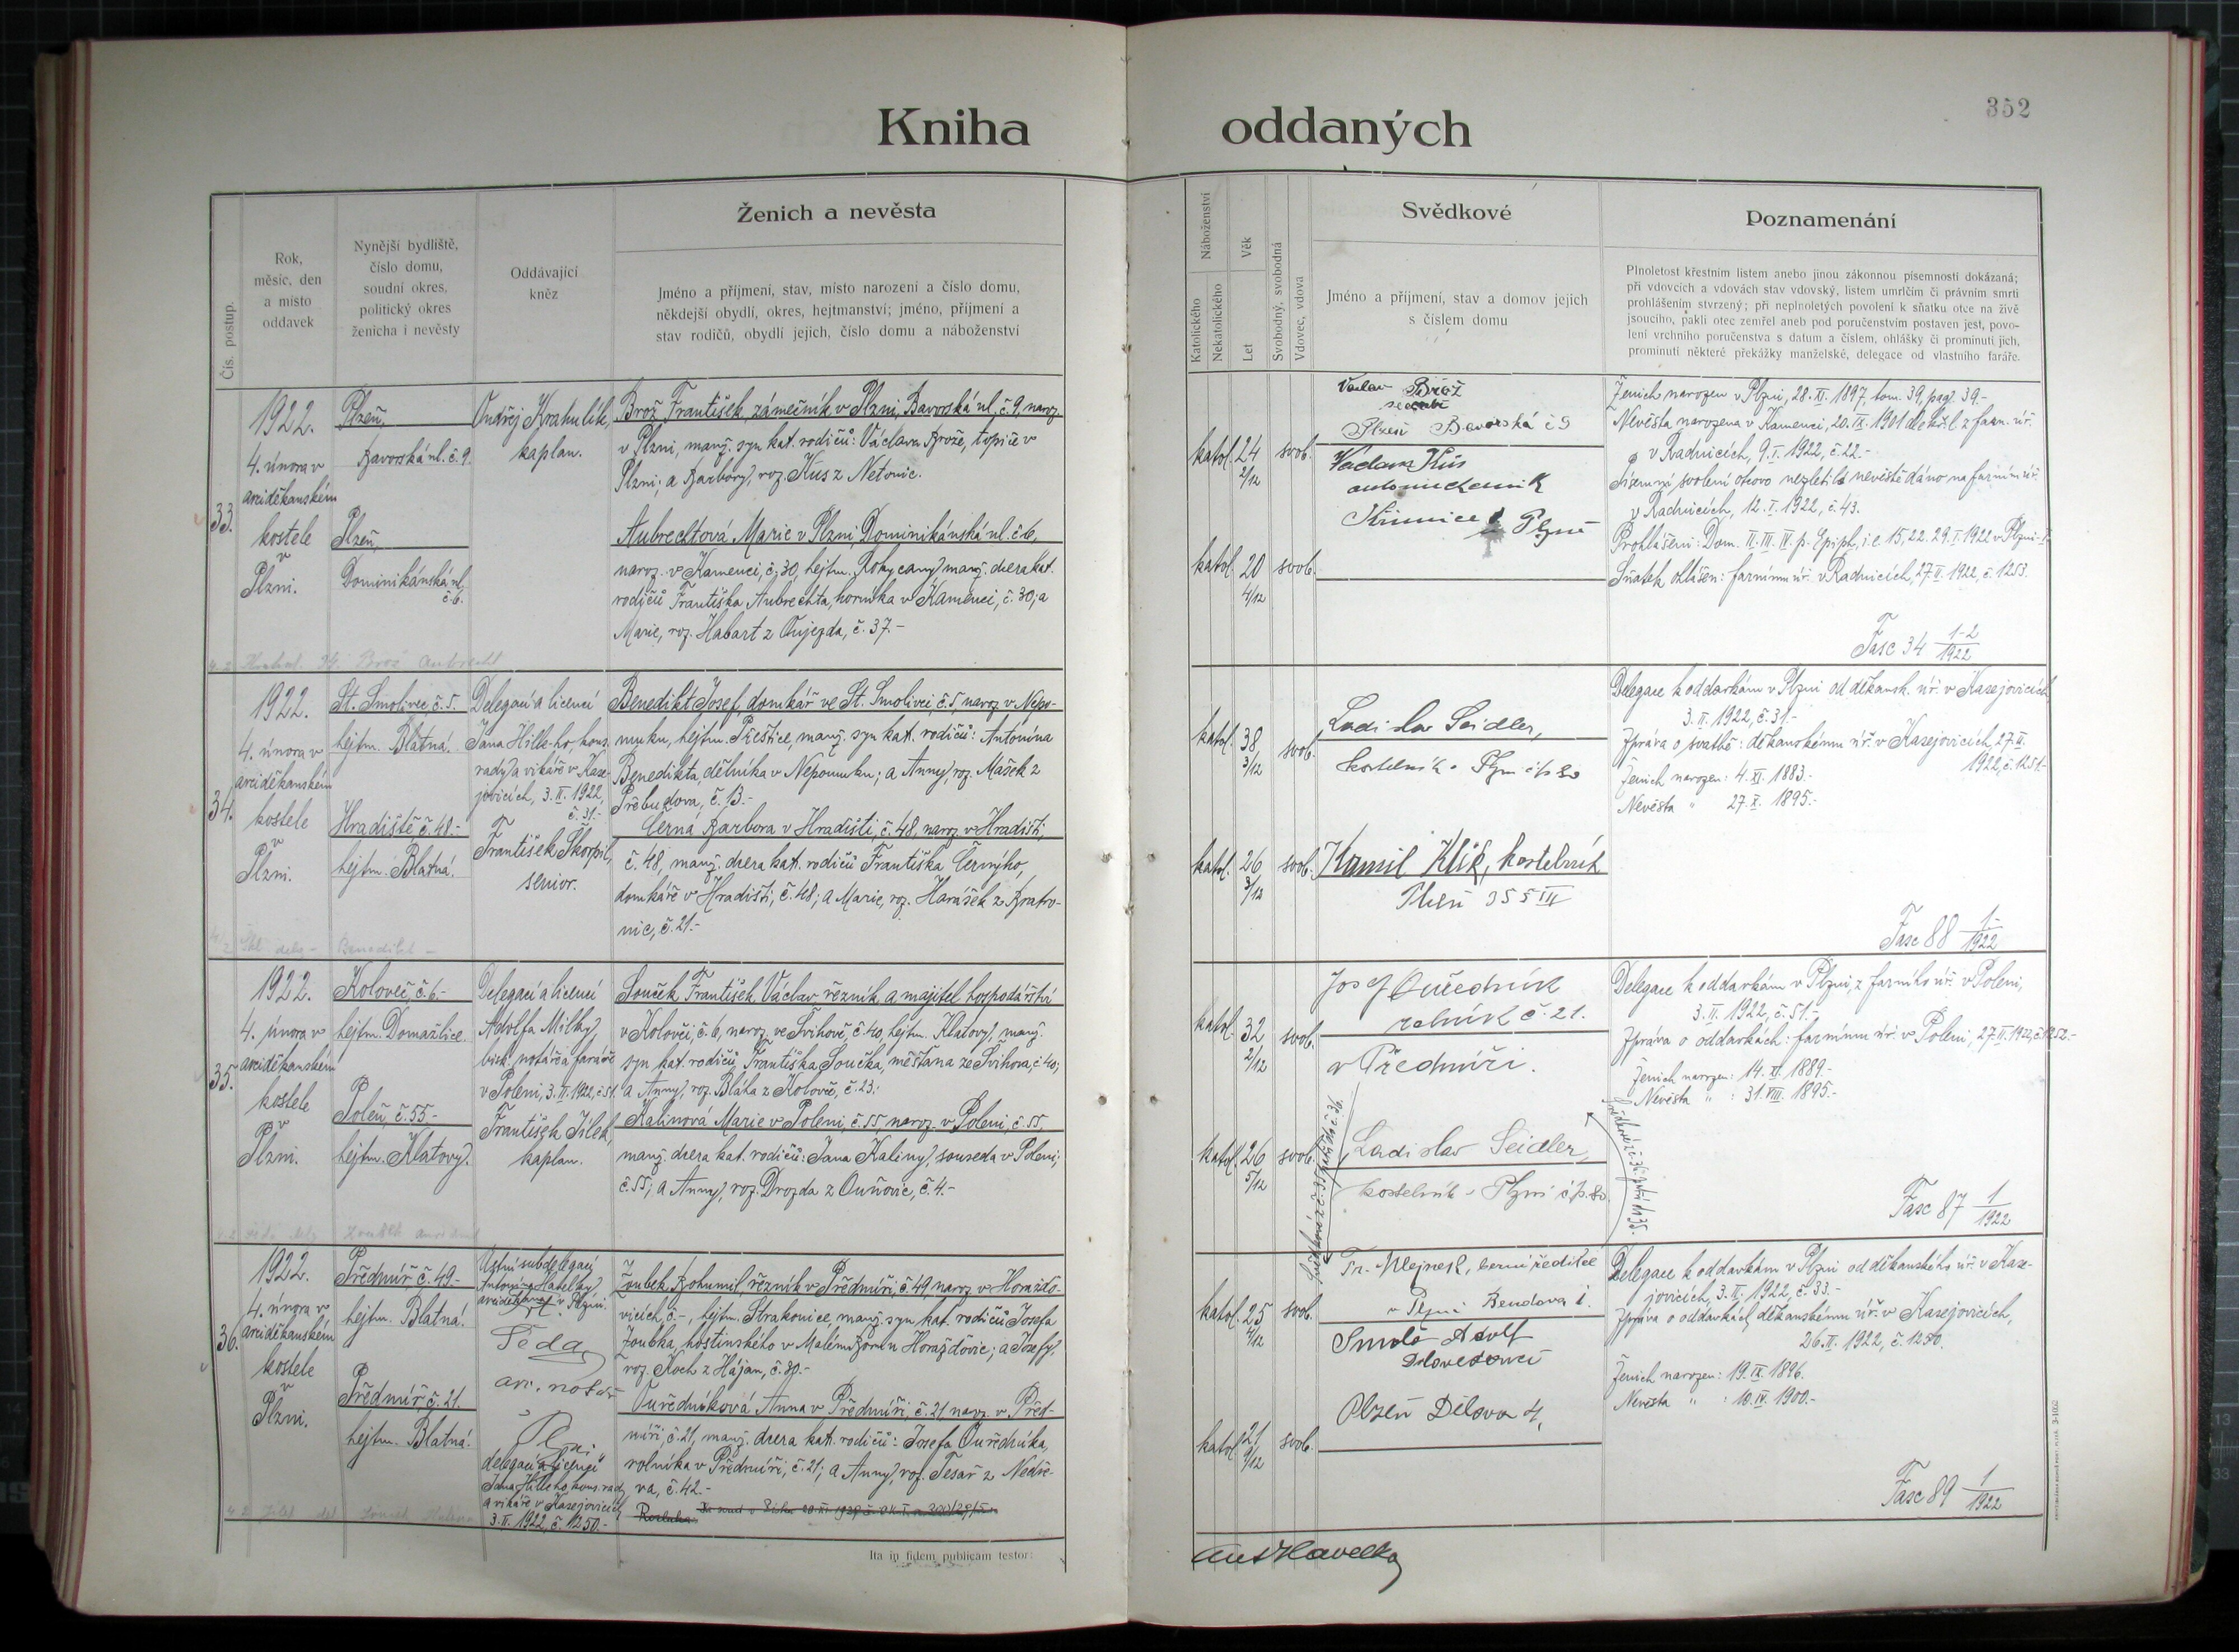 352
Kniha oddaných
Čís. postup.
Rok,
měsíc, den
a místo
oddavek
Nynější bydliště,
číslo domu,
soudní okres,
politický okres
ženicha i nevěsty
Oddávající
kněz
Ženich a nevěsta
Jméno a příjmení, stav, místo narození a číslo domu,
někdejší obydlí, okres, hejtmanství; jméno, příjmení a
stav rodičů, obydlí jejich, číslo domu a náboženství
Náboženství
Katolického
Nekatolického
Věk
Let
Svobodný, svobodná
Vdovec, vdova
Svědkové
Jméno a příjmení, stav a domov jejich
s číslem domu
Poznamenání
Plnoletost křestním listem anebo jinou zákonnou písemností dokázaná;
při vdovcích a vdovách stav vdovský, listem úmrtčím či právním smrti
prohlášením stvrzený; při neplnoletých povolení k sňatku otce na živě
jsoucího, pakli otec zemřel aneb pod poručenstvím postaven jest, povo-
lení vrchního poručenstva s datum a číslem, ohlášky či prominutí jich,
prominutí některé překážky manželské, delegace od vlastního faráře.
33.
1922.
4. února v
arciděkanském
kostele
v
Plzni.
Plzeň,
Bavorská ul. č. 9.
Plzeň,
Dominikánská ul.
č. 6.
Ondřej Krahulík,
kaplan.
Brož František, zámečník v Plzni, Bavorská ul. č. 9, naroz.
v Plzni, manž. syn kat. rodičů: Václava Brože, topiče v
Plzni; a Barbory, roz. Kus z Netonic.
Aubrechtová Marie v Plzni, Dominikánská ul. č. 6,
naroz. v Kamenci, č. 30, hejtm. Rokycany, manž. dcera kat.
rodičů Františka Aubrechta, horníka v Kamenci, č. 30; a
Marie, roz. Habart z Oujezda, č. 37.-
katol. 24 2/12 svob.
katol. 20 4/12 svob.
Václav Brož
Plzeň Bavorská č 9
Václav Kús
Křimice u Plzně
Ženich narozen v Plzni, 28. XI. 1897, tom. 39, pag. 39.-
Nevěsta narozena v Kamenci, 20. IX. 1901 dle kř. l. z farn. úř.
v Radnicích, 9. I. 1922, č. 22.-
Písemné svolení otcovo nezletilé nevěstě dáno na farním úř.
v Radnicích, 12. I. 1922, č. 43.
Prohlášeni: Dom. II. III. IV. p. Epiph. i. e. 15. 22. 29. I. 1922 v Plzni
Sňatek ohlášen: farnímu úř. v Radnicích, 27. II. 1922, č. 1253.
Fasc 34 1-2/1922
34.
1922.
4. února v
arciděkanském
kostele
v
Plzni.
St. Smolivec, č. 5.
hejtm. Blatná.
Hradiště, č. 48.-
hejtm. Blatná.
Delegací a licencí
Jana Hille-ho, kons.
rady a vikáře v Kase-
jovicích, 3. II. 1922,
č. 31.-
František Škorpil,
senior.
Benedikt Josef, domkář ve St. Smolivci, č. 5, naroz. v Nepo-
muku, hejtm. Přeštice, manž. syn kat. rodičů: Antonína
Benedikta, dělníka v Nepomuku; a Anny, roz. Mašek z
Přebudova, č. 13.-
Černá Barbora v Hradišti, č. 48, naroz. v Hradišti,
č. 48, manž. dcera kat. rodičů Františka Černýho,
domkáře v Hradišti, č. 48; a Marie, roz. Harášek z Bratro-
nic, č. 21.-
katol. 38 3/12 svob.
katol. 26 3/12 svob.
Ladislav Seidler,
kostelník - Plzni čp 80
Kamil Klik, kostelník
Plzeň 355 III
Delegace k oddavkám v Plzni od děkansk. úř. v Kasejovicích,
3. II. 1922, č. 31.-
Zpráva o svatbě: děkanskému úř. v Kasejovicích, 27. II.
1922, č. 1251.-
Ženich narozen: 4. XI. 1883.-
Nevěsta " 27. X. 1895.-
Fasc 88 1-/1922
35.
1922.
4. února v
arciděkanském
kostele
v
Plzni.
Koloveč, č. 6.-
hejtm. Domažlice.
Poleň, č. 55.-
hejtm. Klatovy.
Delegací a licencí
Adolfa Milky,
bisk. notáře a faráře
v Poleni, 3. II. 1922, č. 51.
František Jílek,
kaplan.
Souček František Václav, řezník a majitel hospodářství
v Kolovči, č. 6, naroz. ve Švihově, č. 40, hejtm. Klatovy, manž.
syn kat. rodičů Františka Součka, měšťana ze Švihova, č. 40;
a Anny, roz. Bláha z Kolovče, č. 23.
Kalinová Marie v Poleni, č. 55, naroz. v Poleni, č. 55,
manž. dcera kat. rodičů: Jana Kaliny, souseda v Poleni,
č. 55; a Anny, roz. Drozda z Ouňovic, č. 4.-
katol. 32 2/12 svob.
katol. 26 5/12 svob.
Josef Ouředník
rolník č. 21.
v Předmíři.
Ladislav Seidler,
kostelník - Plzni čp. 80.
Delegace k oddavkám v Plzni, z farního úř. v Poleni,
3. II. 1922, č. 51.-
Zpráva o oddavkách: farnímu úř. v Poleni, 27. II. 1922, č. 1252.-
Ženich narozen: 14. XI. 1889.-
Nevěsta " : 31. VIII. 1895.-
Svědkové z č. 35. patří do č. 36.
Svědkové z č. 36. patří do 35.
Fasc 87 1/1922
36.
1922.
4. února v
arciděkanském
kostele
v
Plzni.
Předmíř č. 49.-
hejtm. Blatná.
Předmíř č. 21.
hejtm. Blatná.
Ústní subdelegací
Antonína Havelky,
arciděkana v Plzni.
Šeda
arc. notář
Plzni
delegací a licencí
Jana Hilleho, kons. rady
a vikáře v Kasejovicích
3. II. 1922, č. 1250.-
Zoubek Bohumil, řezník v Předmíři, č. 49 naroz. v Horažďo-
vicích, č. -, hejtm. Strakonice, manž. syn kat. rodičů Josefa
Zoubka, hostinského v Malém Boru u Horažďovic; a Josefy,
roz. Koch z Hájan, č. 30.-
Ouředníková Anna v Předmíři, č. 21 naroz. v Před-
míři, č. 21, manž. dcera kat. rodičů: Josefa Ouředníka,
rolníka v Předmíři, č. 21; a Anny, roz. Tesař z Nedře-
va, č. 42.-
Rozluka:
katol. 25 4/12 svob.
katol. 21 9/12 svob.
Fr. Mlejnek, berní ředitel
v Plzni Bendova 1.
Smola Adolf
Plzeň Dělova 4,
Delegace k oddavkám v Plzni od děkanského úř. v Kase-
jovicích, 3. II. 1922, č. 33.-
Zpráva o oddavkách děkanskému úř. v Kasejovicích,
26. II. 1922, č. 1250.
Ženich narozen: 19. IX. 1896.
Nevěsta " : 10. IV. 1900.-
Fasc 89 1/1922
Ita in fidem publicam testor:
Ant Havelka